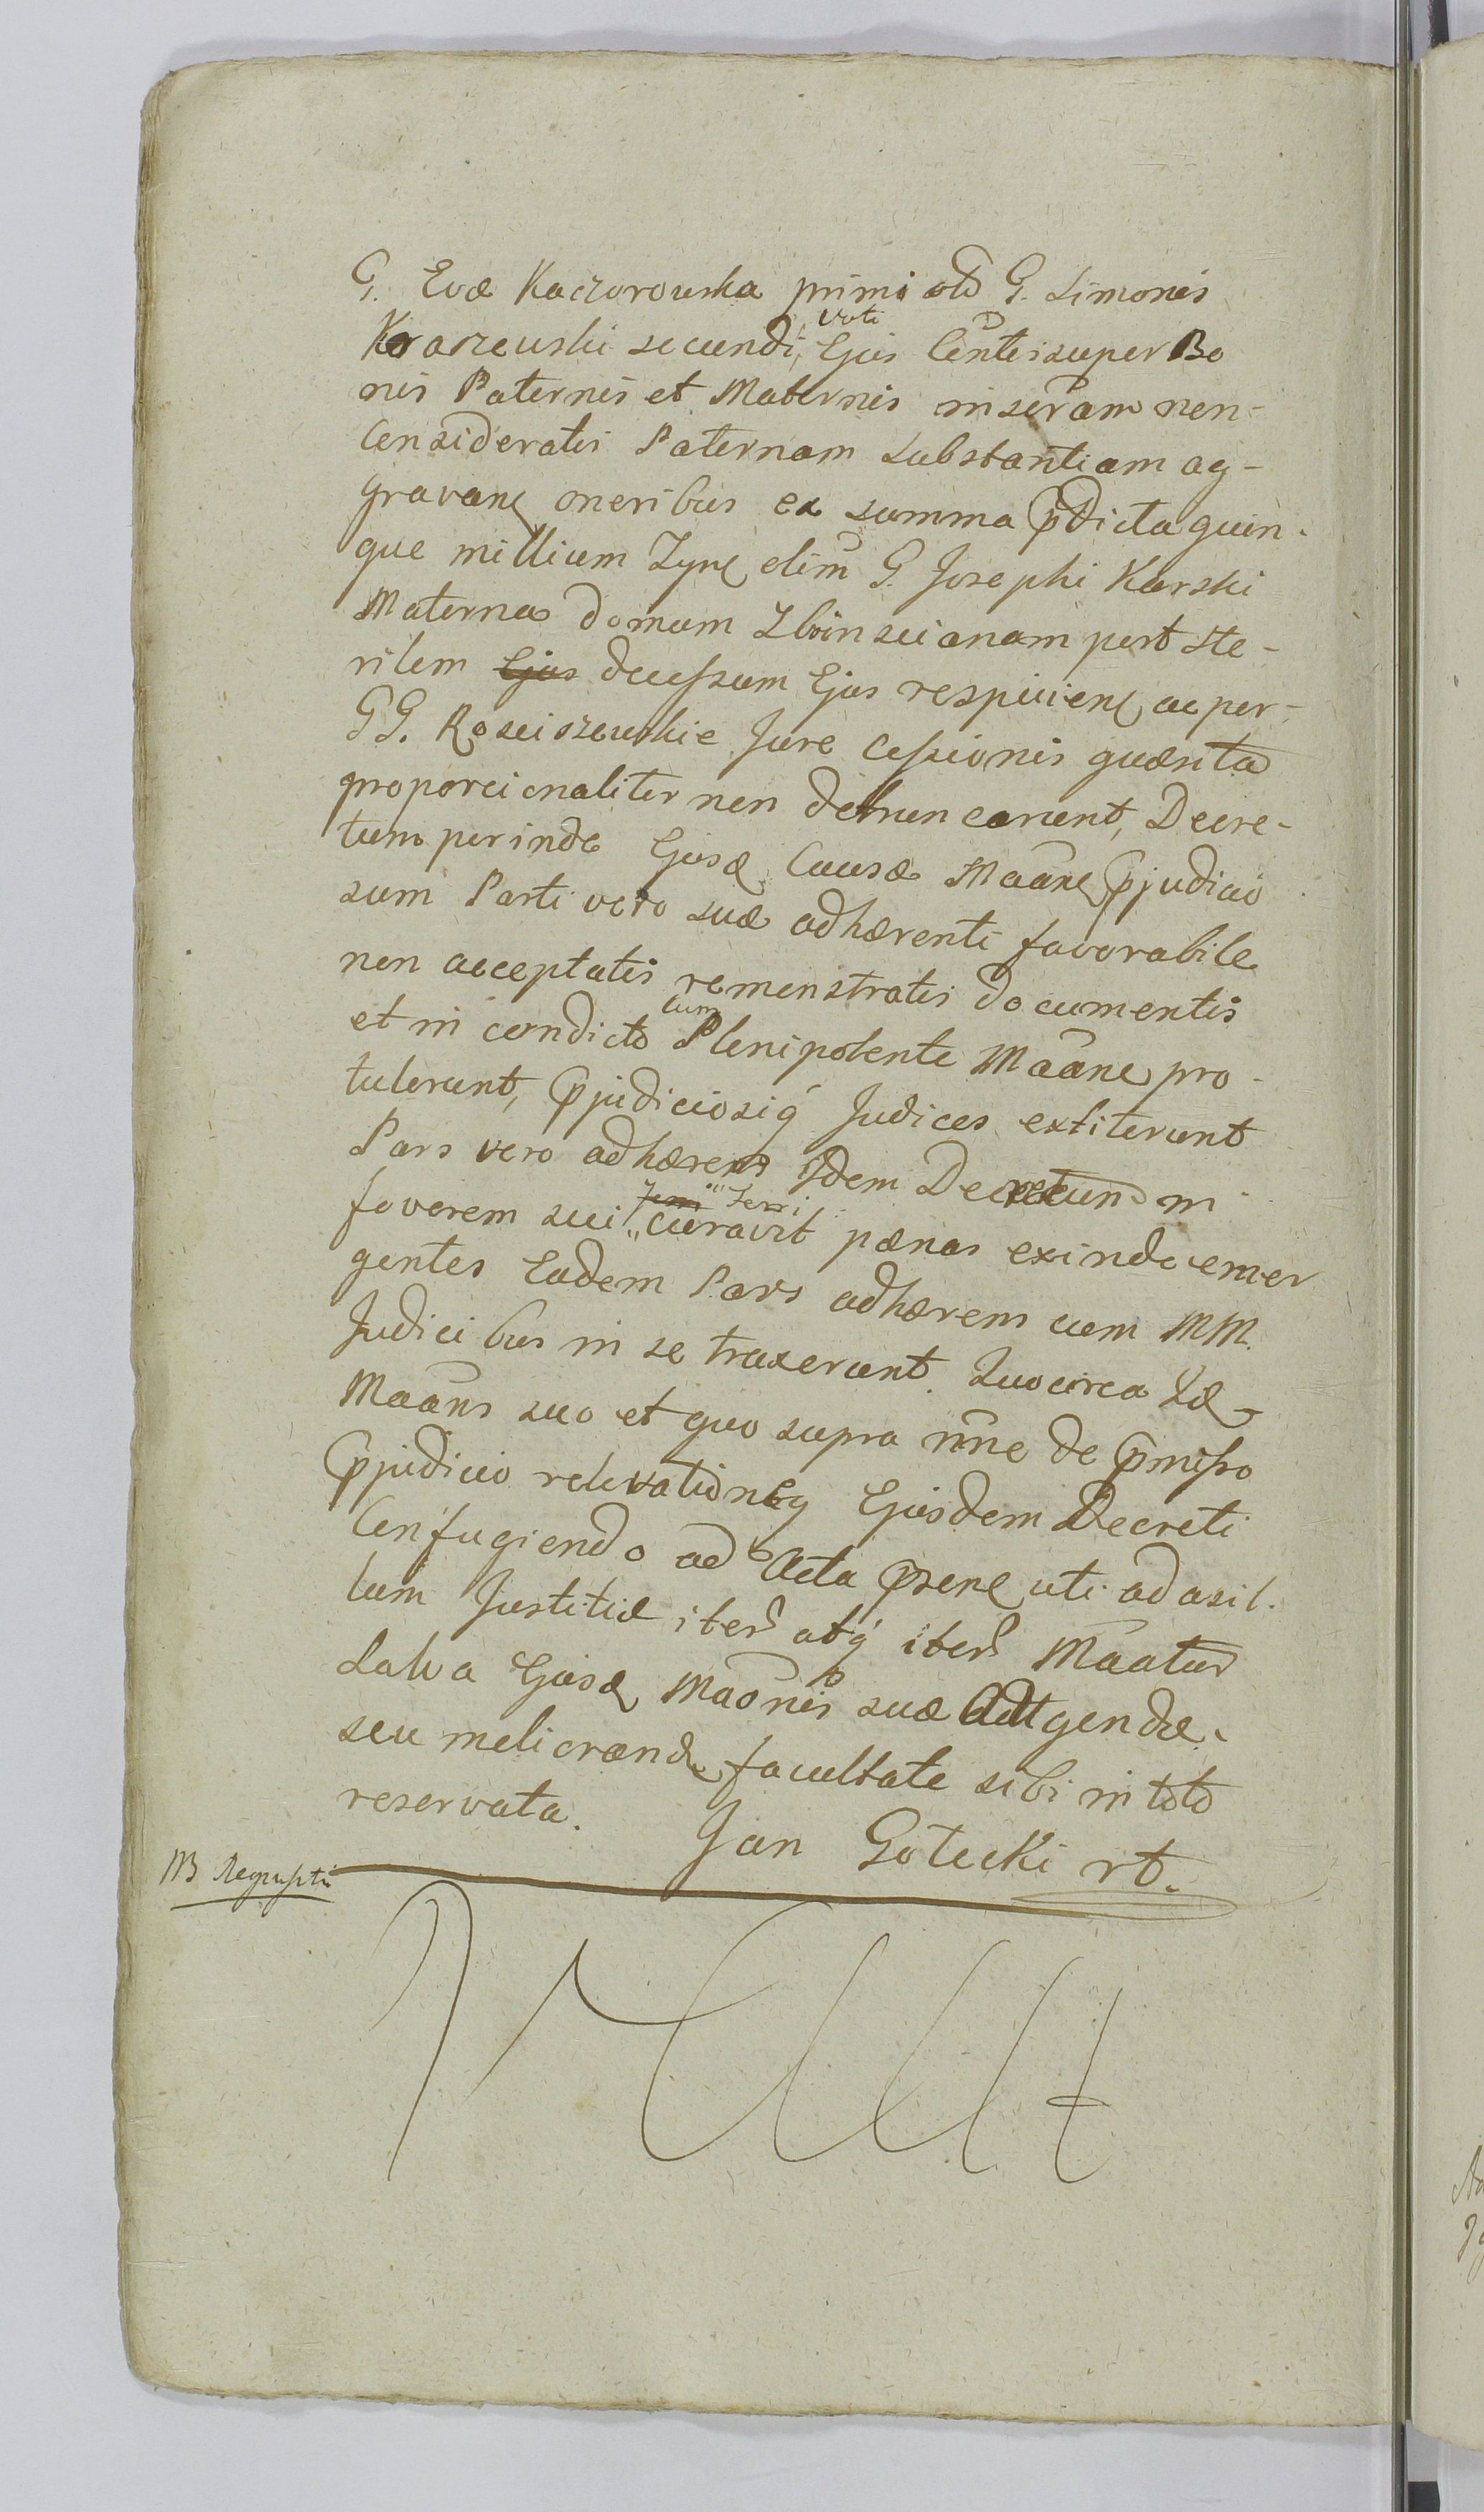 G. Evæ Kaczorowska primi olo G. Simonis
Kraszewski secundi voti Ejus Contisuper Bo
nis Paternis et Maternis inseram non-
Consideratis Paternam Substantiam ag-
gravane oneribus ex summa pdicta quin-
que millium Zyne olim G. Josephi Karski
Materna domum Zboinscianam post ste-
rilem Ejus decessum Ejus respiciene ac per-
GG. Rosciszewskie Jure Cessionis quæsita
proporcionaliter non detruncarunt, Decre-
tum perinde Ejusd Causæ Maane pjudicio
sum Parti vero suæ adhærenti favorabile
non acceptatis remonstratis documentis
et in condicto cum Plenipotente Maane pro-
tulerunt, pjudiciosiq Judices extiterunt
Pars vero adhærens Idem Decretum in
favorem sui ferri curavit pænas exinde emer
gentes Eadem Pars adhærens cum MM.
Judicibus in se traxerunt. Quocirca Id
Maans suo et quo supra nne de pmisso
pjudicio relevationeq Ejusdem Decreti
Confugiendo ad Acta psene uti ad asil-
lum Justitiæ iter atq iter Maatur
Salva Ejusd Maonis suæ Augendæ-
seu meliorandæ facultate sibi in toto
reservata. Jan Gołecki rt.
NB